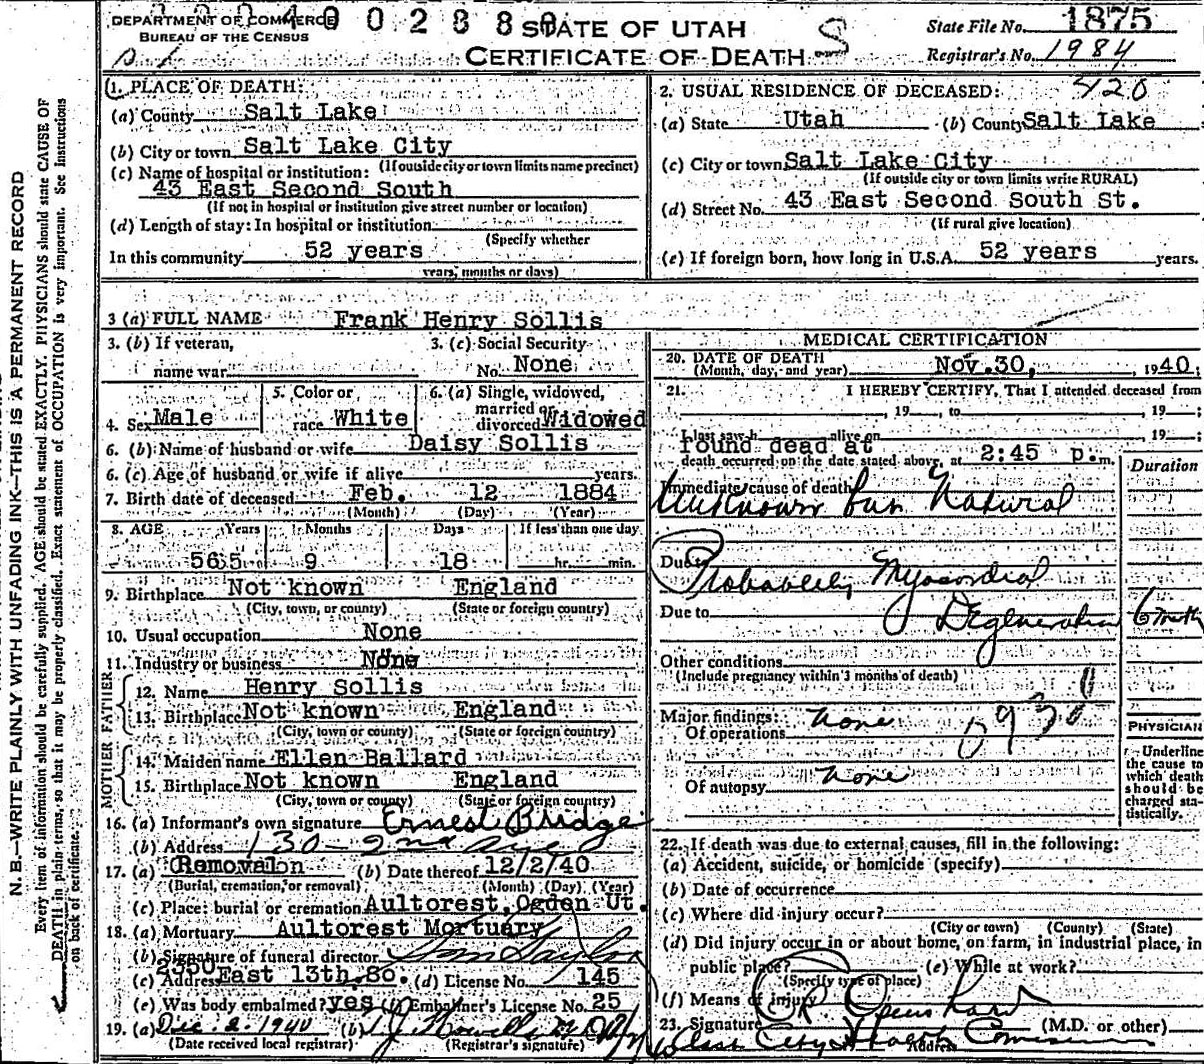 DEPARTMENT OF COMMERCE
BUREAU OF THE CENSUS
0 0 2 8 8
STATE OF UTAH
CERTIFICATE OF DEATH
S
State File No. 1875
Registrar's No. 1984
N. B.—WRITE PLAINLY WITH UNFADING INK—THIS IS A PERMANENT RECORD
Every item of information should be carefully supplied. AGE should be stated EXACTLY. PHYSICIANS should state CAUSE OF
DEATH in plain terms, so that it may be properly classified. Exact statement of OCCUPATION is very important. See Instructions
on back of certificate.
1. PLACE OF DEATH:
(a) County Salt Lake
(b) City or town Salt Lake City
(If outside city or town limits name precinct)
(c) Name of hospital or institution:
43 East Second South
(If not in hospital or institution give street number or location)
(d) Length of stay: In hospital or institution
(Specify whether
In this community 52 years
years, months or days)
2. USUAL RESIDENCE OF DECEASED: 420
(a) State Utah (b) County Salt Lake
(c) City or town Salt Lake City
(If outside city or town limits write RURAL)
(d) Street No. 43 East Second South St.
(If rural give location)
(e) If foreign born, how long in U.S.A. 52 years years.
3 (a) FULL NAME Frank Henry Sollis
3. (b) If veteran,
name war
3. (c) Social Security
No. None
4. Sex Male
5. Color or
race White
6. (a) Single, widowed,
married or
divorced Widowed
6. (b) Name of husband or wife Daisy Sollis
6. (c) Age of husband or wife if alive years.
7. Birth date of deceased Feb. 12 1884
(Month) (Day) (Year)
8. AGE Years Months Days If less than one day
565 9 18 hr. min.
9. Birthplace Not known England
(City, town, or county) (State or foreign country)
10. Usual occupation None
11. Industry or business None
FATHER
12. Name Henry Sollis
13. Birthplace Not known England
(City, town or county) (State or foreign country)
MOTHER
14. Maiden name Ellen Ballard
15. Birthplace Not known England
(City, town or county) (State or foreign country)
16. (a) Informant's own signature Ernest Bridge
(b) Address 130 - 2nd Ave
17. (a) Removal on (b) Date thereof 12/2/40
(Burial, cremation, or removal) (Month) (Day) (Year)
(c) Place: burial or cremation Aultorest, Ogden Ut.
18. (a) Mortuary Aultorest Mortuary
(b) Signature of funeral director
2350
(c) Address East 13th So. (d) License No. 145
(e) Was body embalmed? yes (f) Embalmer's License No. 25
19. (a) Dec. 2. 1940 (b)
(Date received local registrar) (Registrar's signature)
MEDICAL CERTIFICATION
20. DATE OF DEATH
(Month, day, and year) Nov. 30, , 1940
21. I HEREBY CERTIFY, That I attended deceased from
, 19 , to , 19 ;
I last saw h alive on , 19 ;
found dead at
death occurred on the date stated above, at 2:45 p.m.
Duration
Immediate cause of death
Unknown but Natural
Due to
Probably Myocardial
Due to Degeneration
Other conditions
(Include pregnancy within 3 months of death)
Major findings:
Of operations none
Of autopsy none
PHYSICIAN
Underline
the cause to
which death
should be
charged sta-
tistically.
22. If death was due to external causes, fill in the following:
(a) Accident, suicide, or homicide (specify)
(b) Date of occurrence
(c) Where did injury occur?
(City or town) (County) (State)
(d) Did injury occur in or about home, on farm, in industrial place, in
public place? (e) While at work?
(Specify type of place)
(f) Means of injury
23. Signature (M.D. or other)
City Health
Address